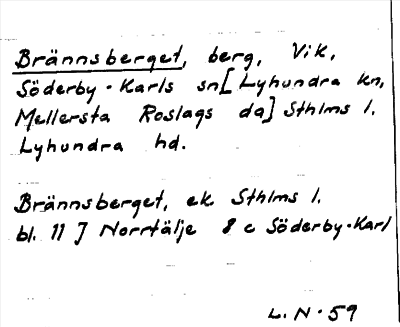 Brännsberget, berg, Vik,
Söderby-Karls sn [Lyhundra kn,
Mellersta Roslags da] Sthlms l.
Lyhundra hd.
Brännsberget, ek Sthlms l.
bl. 11 J Norrtälje 8 c Söderby-Karl
L.N-59